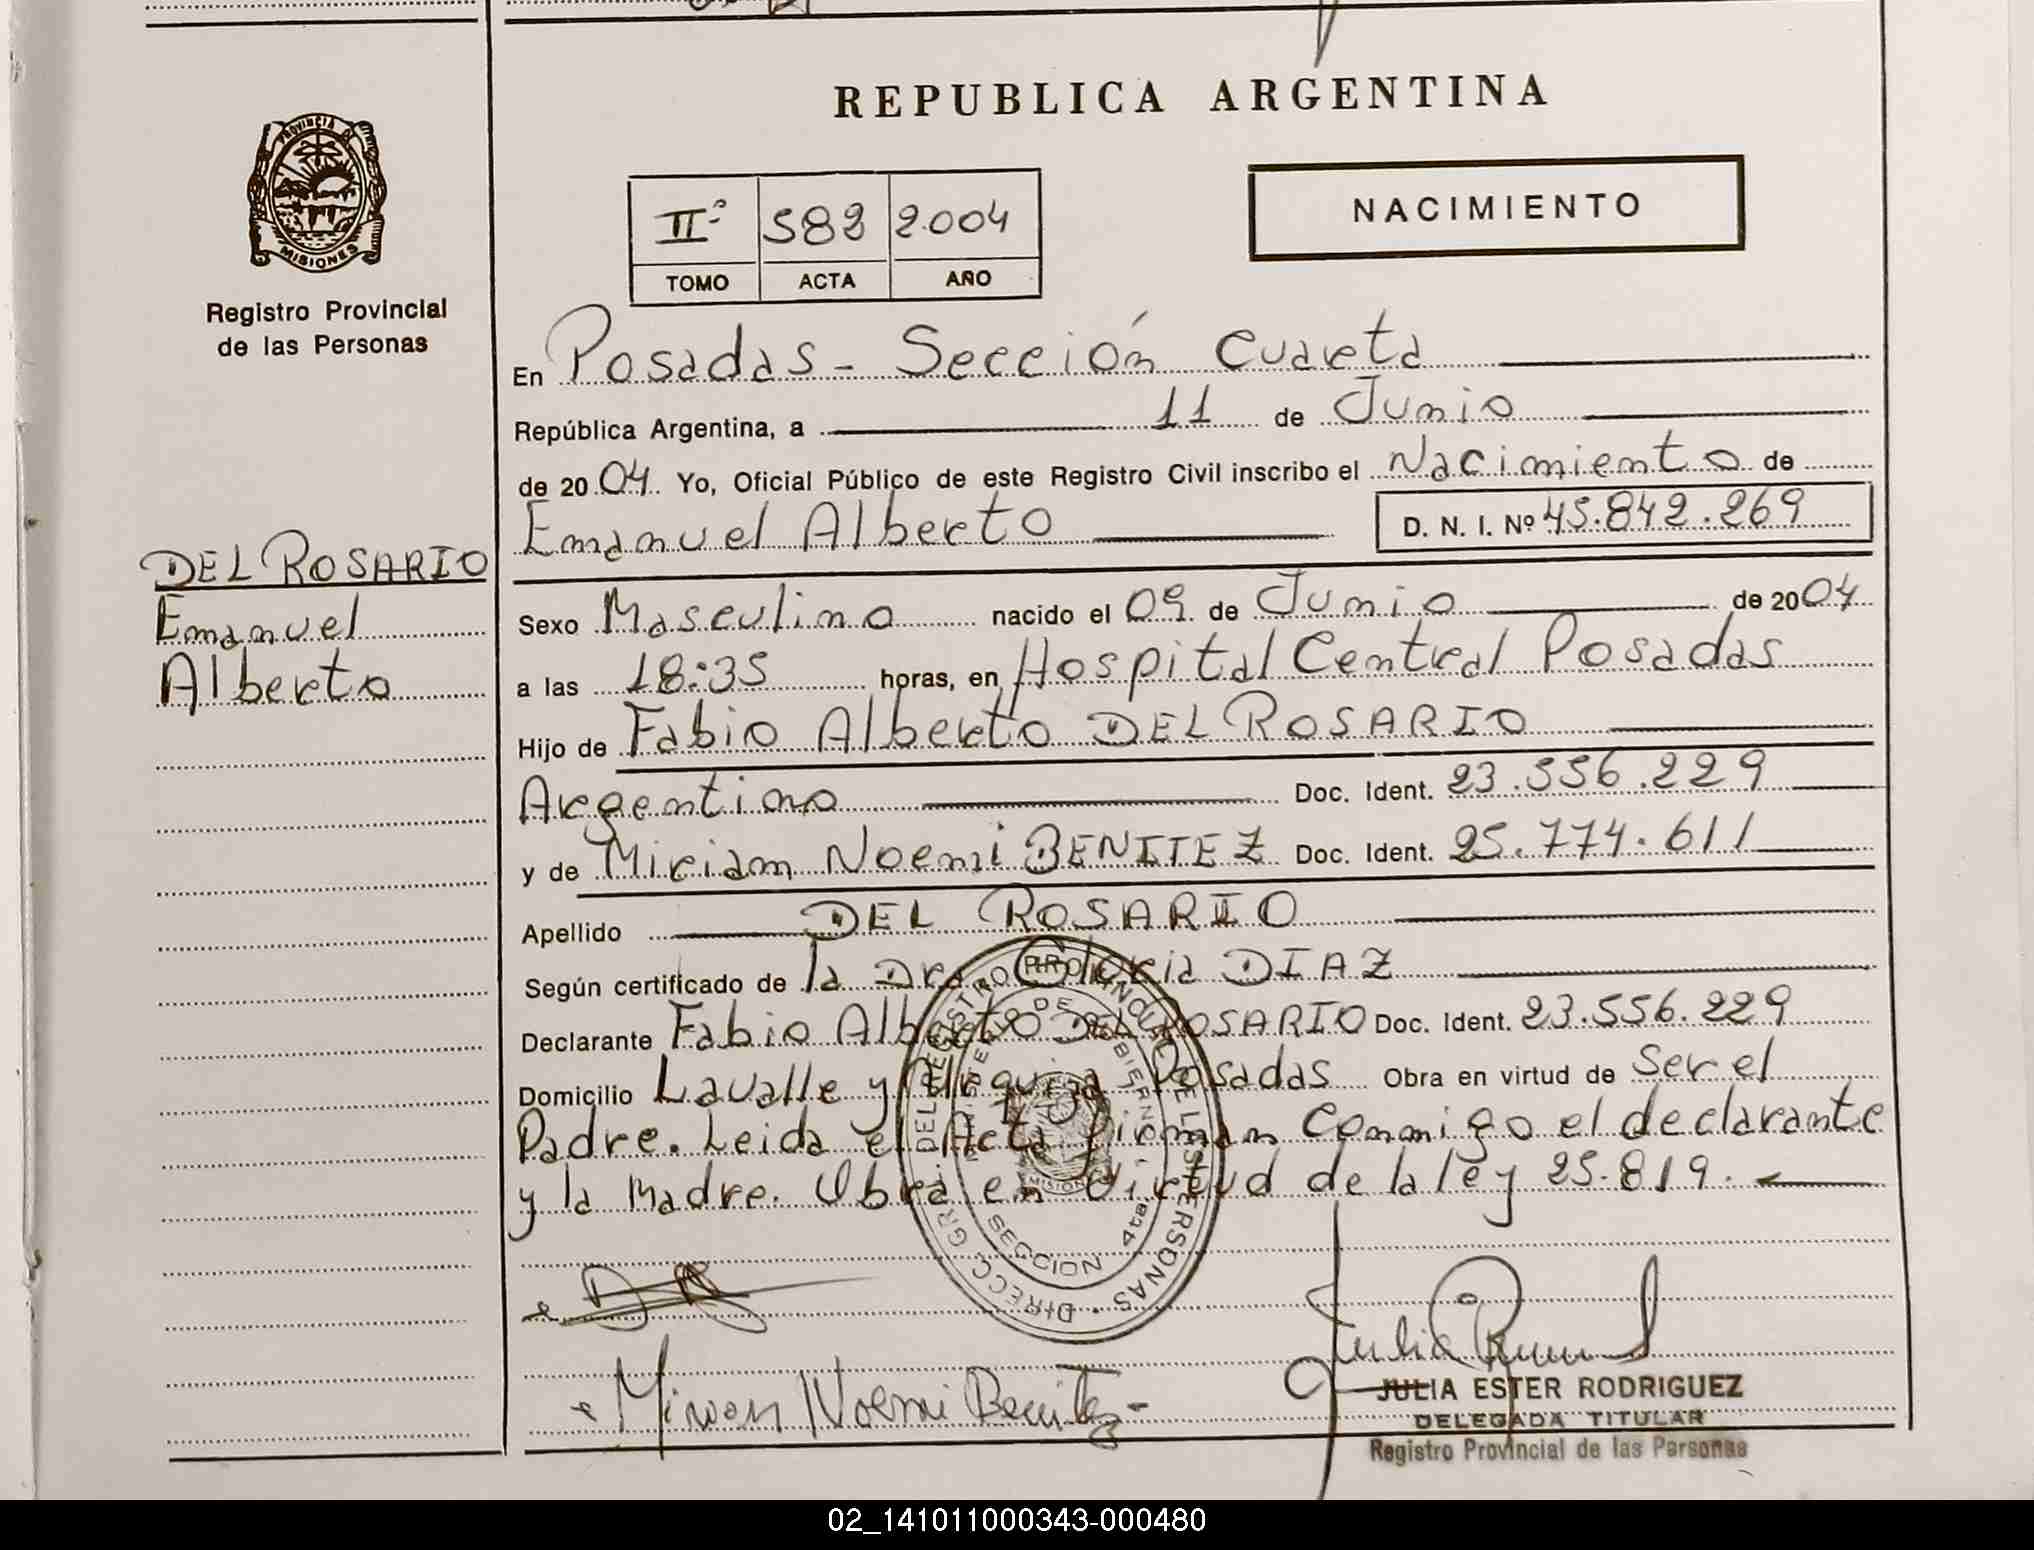 REPUBLICA ARGENTINA
PROVINCIA DE
MISIONES
Registro Provincial
de las Personas
IIº 582 2.004
TOMO ACTA AÑO
NACIMIENTO
En Posadas - Sección Cuarta
República Argentina, a 11 de Junio
de 2004. Yo, Oficial Público de este Registro Civil inscribo el Nacimiento de
Emanuel Alberto D. N. I. Nº 45.842.269
DEL ROSARIO
Emanuel
Alberto
Sexo Masculino nacido el 09 de Junio de 2004
a las 18:35 horas, en Hospital Central Posadas
Hijo de Fabio Alberto DEL ROSARIO
Argentino Doc. Ident. 23.556.229
y de Miriam Noemi BENITEZ Doc. Ident. 25.774.611
Apellido DEL ROSARIO
Según certificado de la Dra Gloria DIAZ
Declarante Fabio Alberto DEL ROSARIO Doc. Ident. 23.556.229
Domicilio Lavalle y Posadas Obra en virtud de Ser el
Padre. Leida el Acta firman conmigo el declarante
y la madre. Obra en virtud de la ley 25.819.
DIRECC. GRAL. DEL REGISTRO PROVINCIAL DE LAS PERSONAS
MINISTERIO DE GOBIERNO
MISIONES
SECCION 4ta.
Miriam Noemi Benitez
JULIA ESTER RODRIGUEZ
DELEGADA TITULAR
Registro Provincial de las Personas
02_141011000343-000480